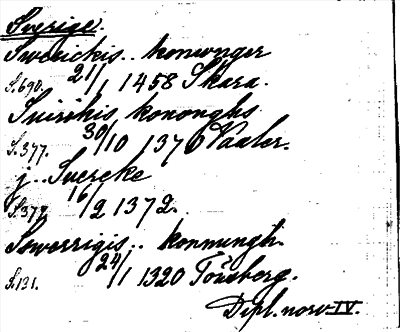 Sverige.
Swerickis.. konwnger
S.690. 21/1 1458 Skara.
Svirikis kononghs
S.377. 30/10 1370 Vaaler.
j.. Suercke
S.377. 16/2 1372.
Sowerrigis.. konnungh.
S.131. 24/1 1320 Tönsberg.
Dipl. norv. IV.